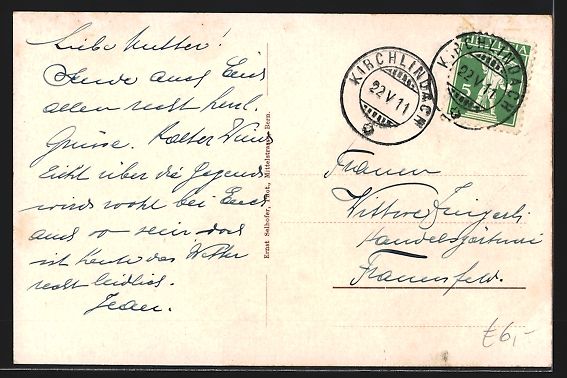 Liebe Mutter!
Sende auch Euch
allen recht herzl.
Grüsse. Kalter Wind
zieht über die Gegend
wird wohl bei Euch
auch so sein, doch
ist heute das Wetter
recht leidlich.
Jean.
Ernst Selhofer, Phot., Mittelstrasse, Bern.
KIRCHLINDACH
22.V.11
KIRCHLINDACH
22.V.11
HELVETIA
5
Frauen
Wittwe
Handelsgärtnerei
Frauenfeld.
€6,-